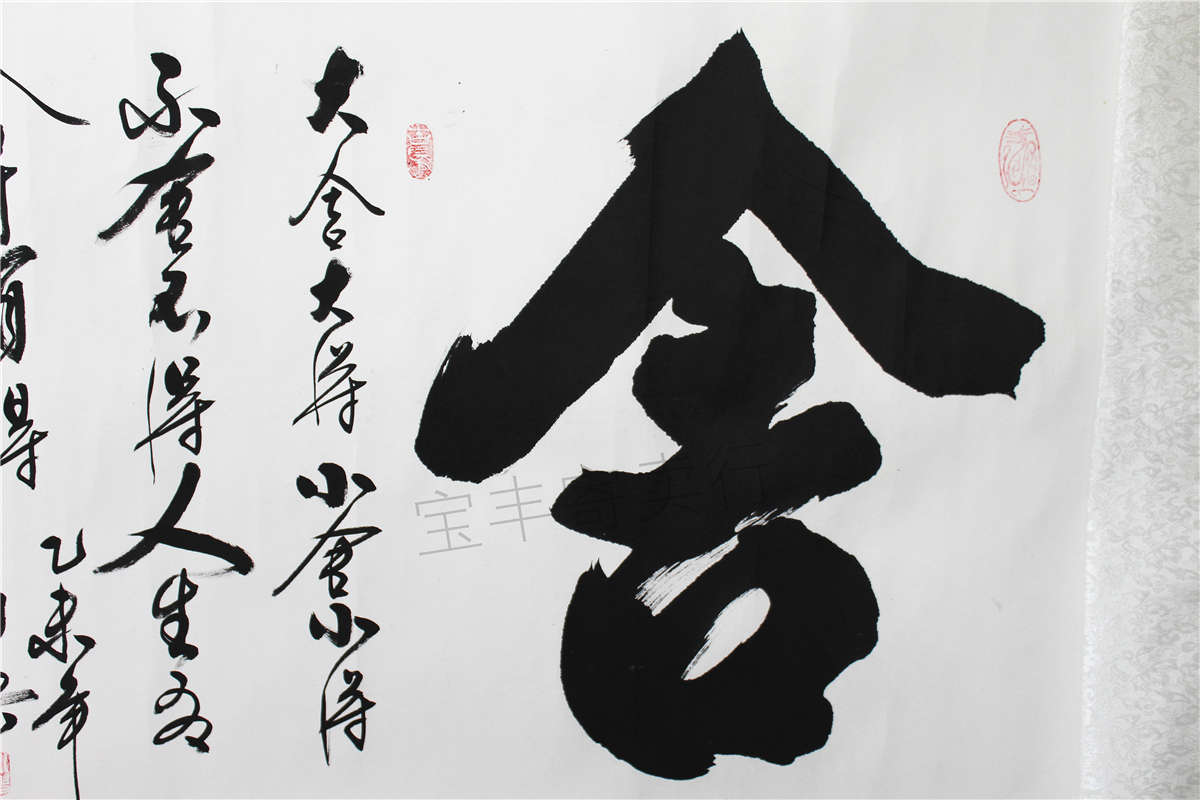 舍
大舍大得小舍小得
不舍不得人生
有得
乙未年
宝丰